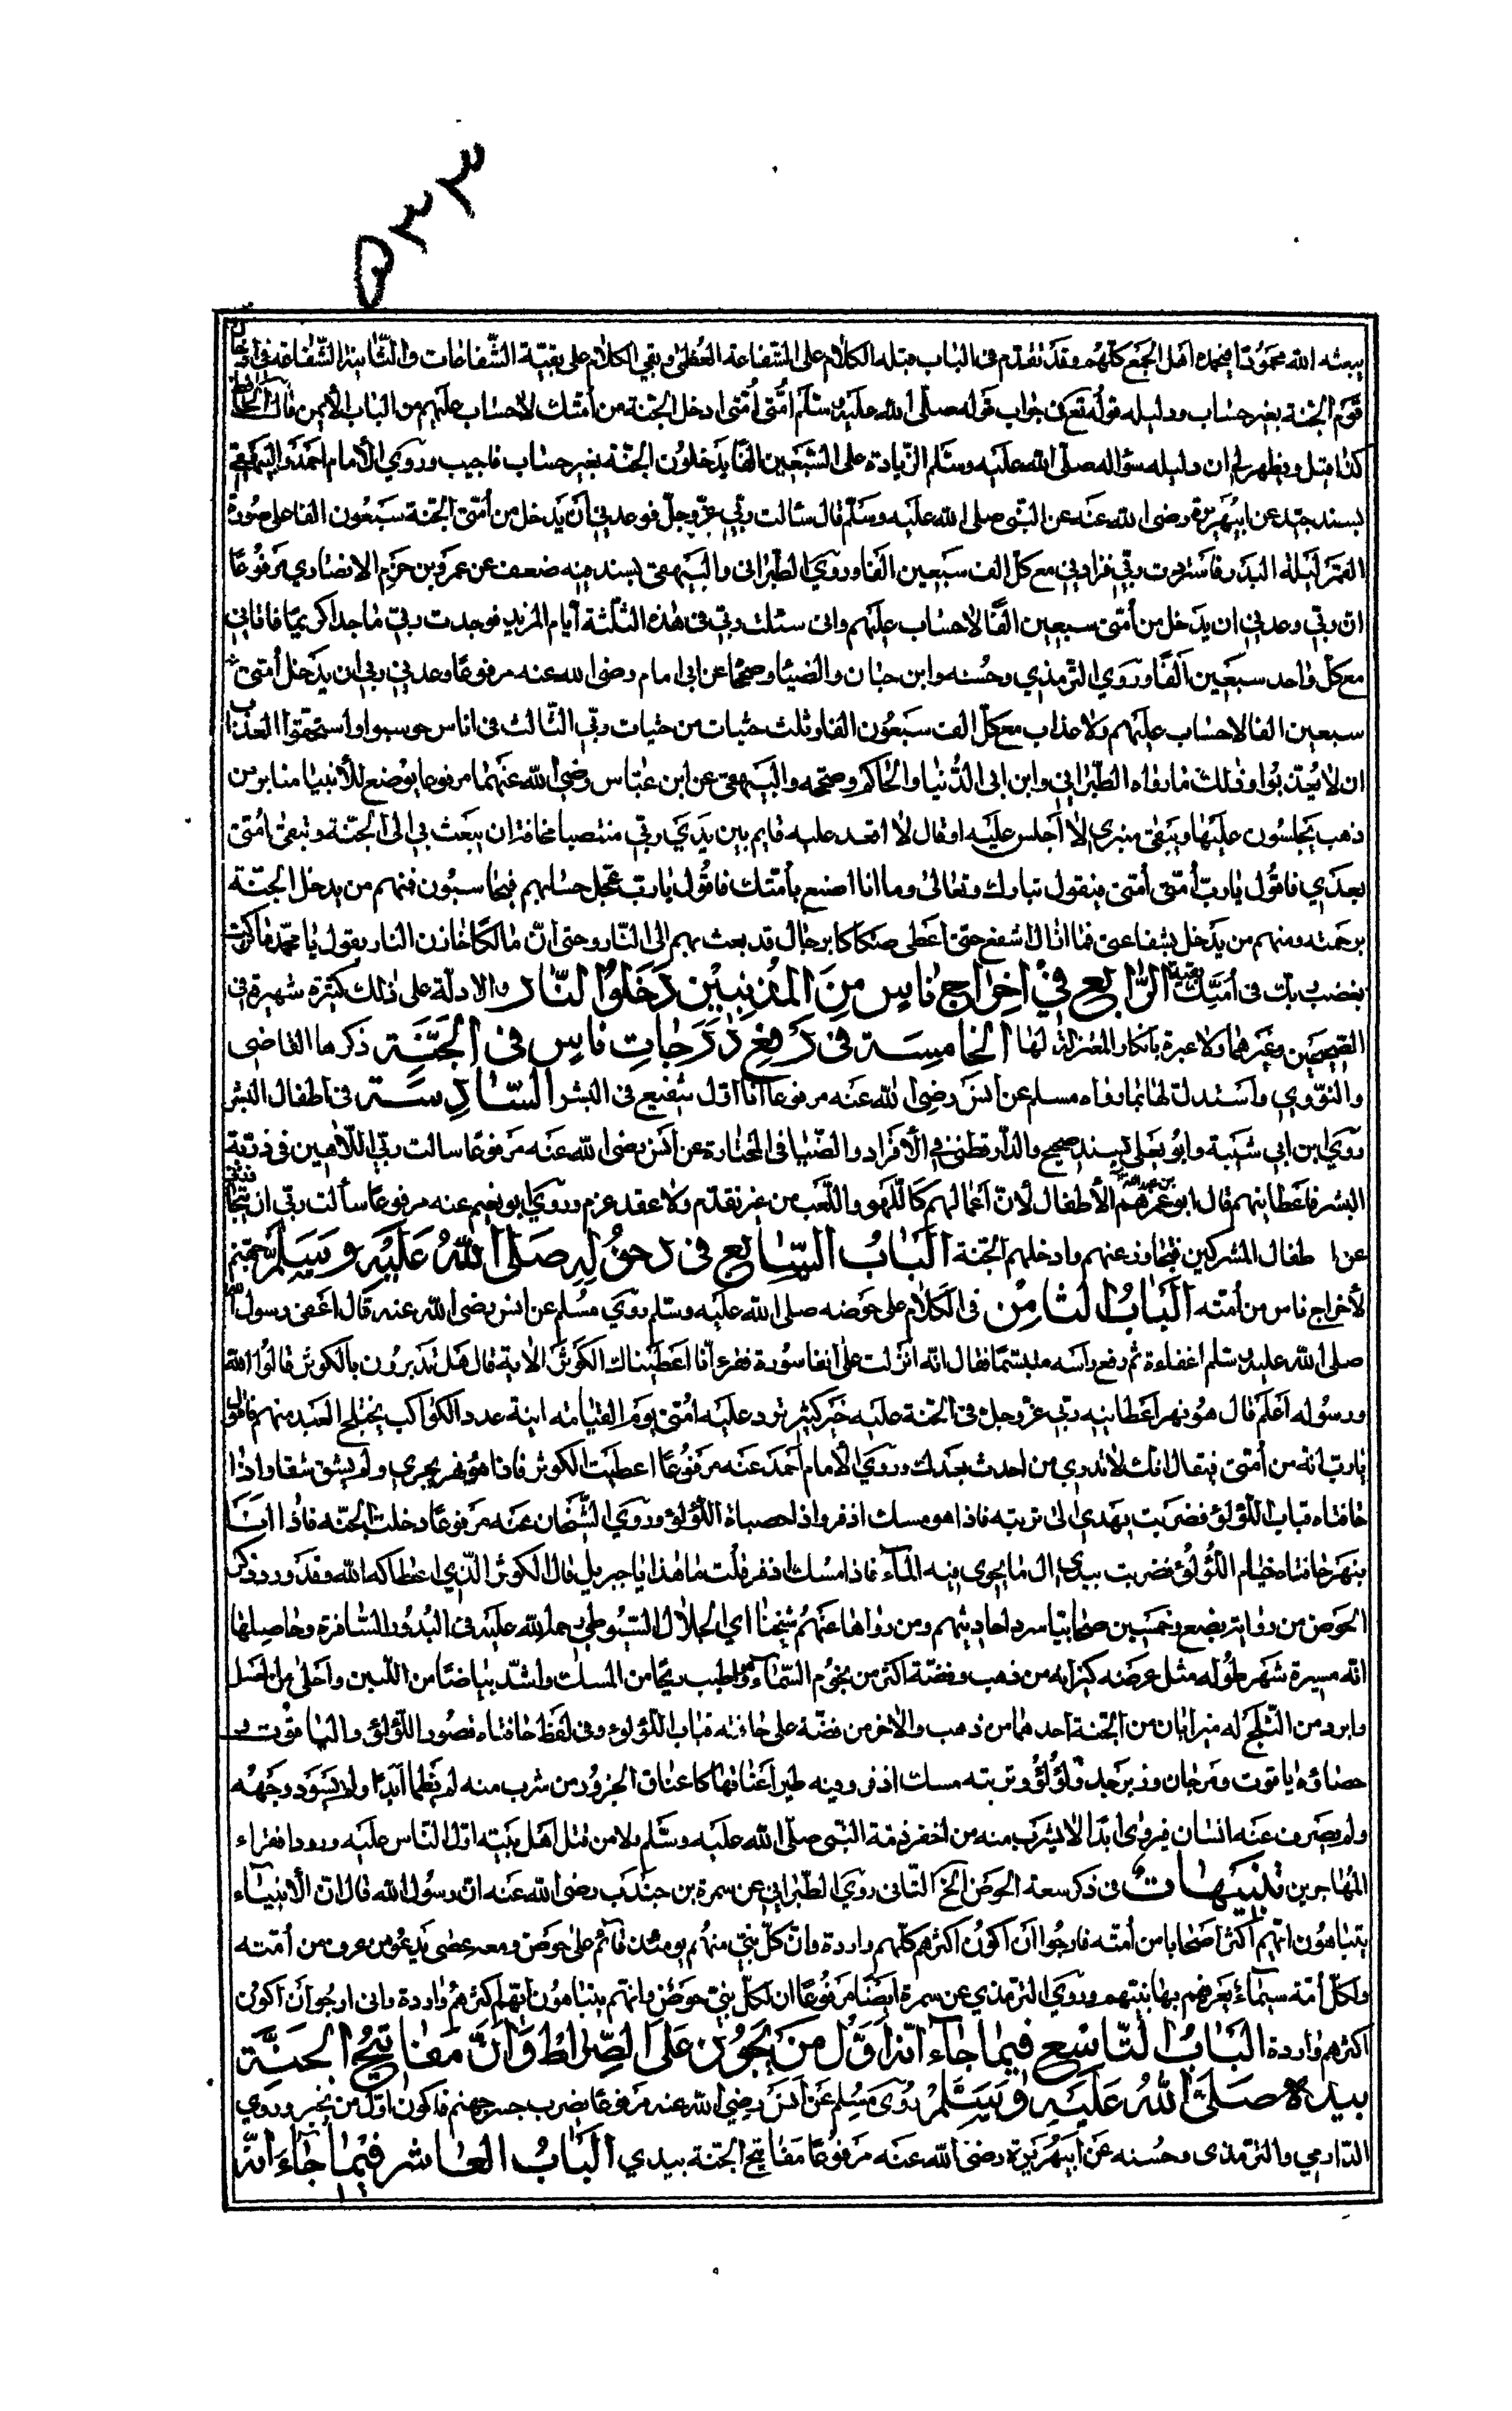 ٥٣٣
يبعثه الله محمودا فيحمده اهل الجمع كلهم وقد تقدم فى الباب قبله الكلام على الشفاعة العظمى وبقي الكلام على بقية الشفاعات والثانية الشفاعة فى ادخال
قوم الجنة بغير حساب ودليله قوله تعالى فى جواب قوله صلى الله عليه وسلم امتى امتى ادخل الجنة من امتك لاحساب عليهم من الباب الايمن قال الحافظ
كذا قيل ويظهر لى ان دليله سؤاله صلى الله عليه وسلم الزيادة على السبعين الفا يدخلون الجنة بغير حساب فاجيب وروي الامام احمد والبيهقي
بسند جيد عن ابيهريرة رضى الله عنه عن النبى صلى الله عليه وسلم قال سالت ربي عز وجل فوعدني ان يدخل من امتى الجنة سبعون الفا على صورة
القمر ليلة البدر فاستزدت ربي فزادني مع كل الف سبعين الفا وروي الطبرانى والبيهقى بسند فيه ضعف عن عمرو بن حزم الانصاري مرفوعا
ان ربي وعدني ان يدخل من امتى سبعين الفا لاحساب عليهم وانى سئلت ربي فى هذه الثلثة ايام المزيد فوجدت ربي ماجدا كريما فاعطانى
مع كل واحد سبعين الفا وروي الترمذي وحسنه وابن حبان والضيا وصححا عن ابى امامه رضى الله عنه مرفوعا وعدني ربي ان يدخل امتى
سبعين الفا لاحساب عليهم ولا عذاب مع كل الف سبعون الفا وثلث حثيات من حثيات ربي الثالث فى اناس حوسبوا واستحقوا العذاب
ان لا يعذبوا وذلك مارواه الطبراني وابن ابى الدنيا والحاكم وصححه والبيهقى عن ابن عباس رضي الله عنهما مرفوعا يوضع للانبيا منابر من
ذهب يجلسون عليها ويبقى منبرى لا اجلس عليه او قال لا اقعد عليه قايم بين يدي ربي منتصبا مخافة ان يبعث بي الى الجنة وتبقى امتى
بعدي فاقول يارب امتى امتى فيقول تبارك وتعالى وما انا اصنع بامتك فاقول يارب عجل حسابهم فيحاسبون فمنهم من يدخل الجنة
برحمته ومنهم من يدخل بشفاعتى فما ازال اشفع حتى اعطى صكاكا برجال قد بعث بهم الى النار وحتى ان مالكا خازن النار يقول يا محمد ما تركت
بغضب ربك فى امتك بقية الرابع في اخراج ناس من المذنبين دخلوا النار والادلة على ذلك كثيرة شهيرة فى
الصحيحين وغيرهما ولا عبرة بانكار المعتزلة لها الخامسة فى رفع درجات ناس فى الجنة ذكرها القاضى
والنووي واستدلت لها بما رواه مسلم عن انس رضى الله عنه مرفوعا انا اول شفيع فى البشر السادسة فى اطفال البشر
روى ابن ابى شيبة وابو يعلى بسند صحيح والدارقطنى فى الافراد والضيا فى المختارة عن انس رضى الله عنه مرفوعا سالت ربي اللاهين فى ذرية
البشر فاعطانيهم قال ابو عمر بن عبد الله هم الاطفال لان اعمالهم كاللهو واللعب من غير تقدم ولا عقد عزم وروي ابو نعيم عنه مرفوعا سألت ربي ان يتجاوز
عن اطفال المشركين فتجاوز عنهم وادخلهم الجنة الباب السابع فى دخوله صلى الله عليه وسلم جهنم
لاخراج ناس من امته الباب الثامن فى الكلام على حوضه صلى الله عليه وسلم روي مسلم عن انس رضي الله عنه قال اغفى رسول الله
صلى الله عليه وسلم اغفاءة ثم رفع راسه متبسما فقال انه انزلت على انفا سورة فقرء انا اعطيناك الكوثر الاية قال هل تدرون ما الكوثر قالوا الله
ورسوله اعلم قال هو نهر اعطانيه ربي عز وجل فى الجنة عليه خير كثير ترد عليه امتى يوم القيامه انيته عدد الكواكب يختلج العبد منهم فاقول
يارب انه من امتى فيقال انك لا تدرى من احدث بعدك وروي الامام احمد عنه مرفوعا اعطيت الكوثر فاذا هو نهر يجري ولم يشق شقا واذا
حافتاه قباب اللؤلؤ فضربت بيدى الى تربته فاذا هو مسك اذفر واذا حصباة اللؤلؤ وروي الشيخان عنه مرفوعا دخلت الجنة فاذا انا
بنهر حافتاه خيام اللؤلؤ فضربت بيدى الى ما يجرى فيه الماء فاذا مسك اذفر قلت ما هذا يا جبريل قال الكوثر الذي اعطاكه الله وقد ورد ذكر
الحوض من رواية بضع وخمسين صحابيا سرد احاديثهم ومن رواها عنهم شيخنا اي الجلال السيوطي رحمه الله عليه فى البدور السافرة وحاصلها
انه مسيرة شهر طوله مثل عرضه كيزانه من ذهب وفضة اكثر من نجوم السماء وماؤه اطيب ريحا من المسك واشد بياضا من اللبن واحلى من العسل
وابرد من الثلج له ميزابان من الجنة احدهما من ذهب والاخر من فضة على حافته قباب اللؤلؤ وفى لفظ حافتاه قصور اللؤلؤ والياقوت
حصاؤه ياقوت ومرجان وزبرجد ولؤلؤ وتربته مسك اذفر وفيه طير اعناقها كاعناق الجزور من شرب منه لم يظما ابدا ولم يسود وجهه
ولم يصرف عنه انسان فيروى ابدا لا يشرب منه من اخفر ذمة النبى صلى الله عليه وسلم ولا من قتل اهل بيته اول الناس عليه ورودا فقراء
المهاجرين تنبيهات فى ذكر سعة الحوض الخ الثانى روي الطبراني عن سمرة بن جندب رضى الله عنه ان رسول الله قال ان الانبياء
يتباهون ايهم اكثر اصحابا من امته فارجوا ان اكون اكثرهم كلهم واردة وان كل نبي منهم يومئذ قائم على حوض ومعه عصى يدعو من عرف من امته
ولكل امة سيماء يعرفهم بها نبيهم وروي الترمذي عن سمرة ايضا مرفوعا ان لكل نبي حوض وانهم يتباهون ايهم اكثرهم واردة وانى ارجو ان اكون
اكثرهم واردة الباب التاسع فيما جاء انه اول من يجوز على الصراط وان مفاتيح الجنة
بيده صلى الله عليه وسلم روى مسلم عن انس رضي الله عنه مرفوعا يضرب جسر جهنم فاكون اول من يجيز وروي
الدارمي والترمذى وحسنه عن ابيهريرة رضى الله عنه مرفوعا مفاتيح الجنة بيدي الباب العاشر فيما جاء انه